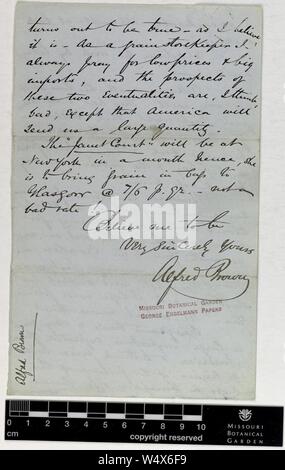 turns out to be true – as I believe
it is – As a grain Storekeeper I
always pray for low prices & big
imports, and the prospects of
these two eventualities, are, I think,
bad, except that America will
send us a large quantity.
The "Janet Court" will be at
New York in a month hence, she
is to bring grain in bags to
Glasgow @ 7/6 p. qr. – not a
bad rate
Believe me to be
Very Sincerely Yours
Alfred Brown
MISSOURI BOTANICAL GARDEN
GEORGE ENGELMANN PAPERS
Alfred Brown
0 1 2 3 4 5 6 7 8 9 10
cm
copyright reserved
MISSOURI
BOTANICAL
GARDEN
alamy
W4X6F9